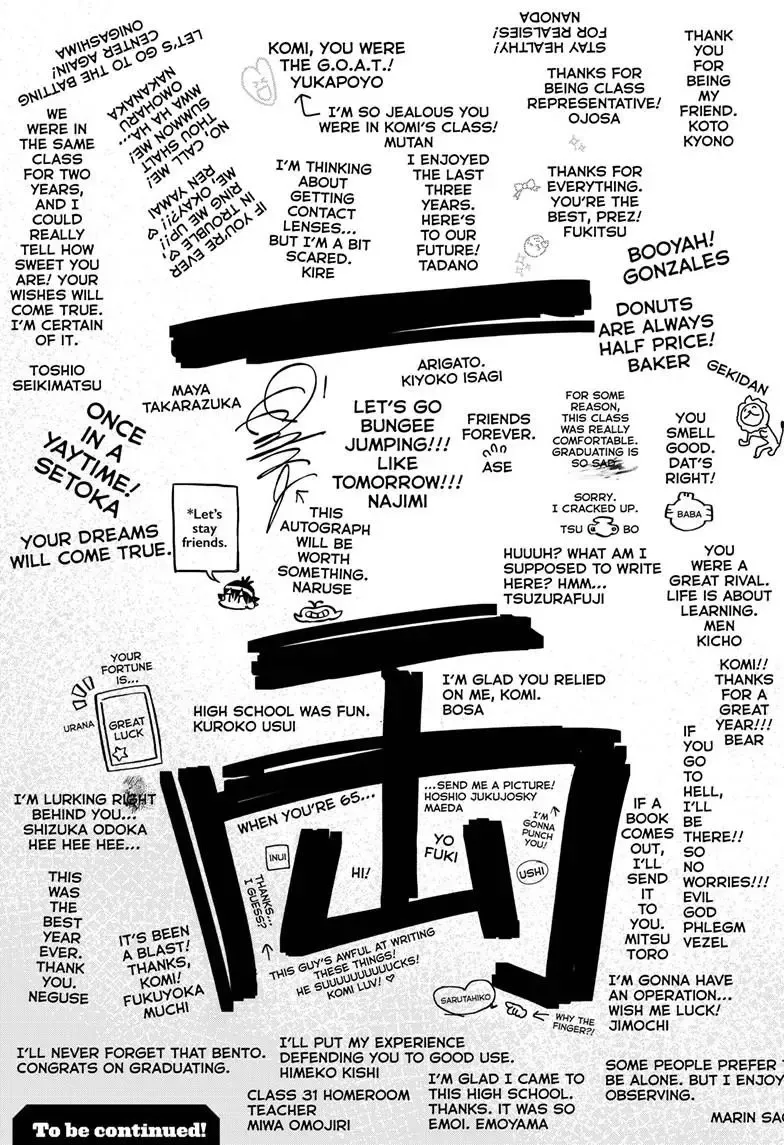 LET'S GO TO THE BATTING
CENTER AGAIN!
ONIGASHIMA
KOMI, YOU WERE
THE G.O.A.T.!
YUKAPOYO
STAY HEALTHY!
FOR REALSIES!
NANODA
THANK
YOU
FOR
BEING
MY
FRIEND.
KOTO
KYONO
NO, CALL ME!
THOU SHALT
SUMMON ME!
MWA HA HA...
OMOHARU
NAKANAKA
I'M SO JEALOUS YOU
WERE IN KOMI'S CLASS!
MUTAN
THANKS FOR
BEING CLASS
REPRESENTATIVE!
OJOSA
WE
WERE IN
THE SAME
CLASS
FOR TWO
YEARS,
AND I
COULD
REALLY
TELL HOW
SWEET YOU
ARE! YOUR
WISHES WILL
COME TRUE.
I'M CERTAIN
OF IT.
TOSHIO
SEIKIMATSU
IF YOU'RE EVER
IN TROUBLE,
RING ME UP!!
ME, OKAY?!!
REN YAMAI
I'M THINKING
ABOUT
GETTING
CONTACT
LENSES...
BUT I'M A BIT
SCARED.
KIRE
I ENJOYED
THE LAST
THREE
YEARS.
HERE'S
TO OUR
FUTURE!
TADANO
THANKS FOR
EVERYTHING.
YOU'RE THE
BEST, PREZ!
FUKITSU
BOOYAH!
GONZALES
DONUTS
ARE ALWAYS
HALF PRICE!
BAKER
MAYA
TAKARAZUKA
ARIGATO.
KIYOKO ISAGI
GEKIDAN
ONCE
IN A
YAYTIME!
SETOKA
LET'S GO
BUNGEE
JUMPING!!!
LIKE
TOMORROW!!!
NAJIMI
FRIENDS
FOREVER.
ASE
FOR SOME
REASON,
THIS CLASS
WAS REALLY
COMFORTABLE.
GRADUATING IS
SO SAD.
YOU
SMELL
GOOD.
DAT'S
RIGHT!
BABA
SORRY.
I CRACKED UP.
TSU BO
YOUR DREAMS
WILL COME TRUE.
*Let's
stay
friends.
THIS
AUTOGRAPH
WILL BE
WORTH
SOMETHING.
NARUSE
HUUUH? WHAT AM I
SUPPOSED TO WRITE
HERE? HMM...
TSUZURAFUJI
YOU
WERE A
GREAT RIVAL.
LIFE IS ABOUT
LEARNING.
MEN
KICHO
YOUR
FORTUNE
IS...
URANA
GREAT
LUCK
HIGH SCHOOL WAS FUN.
KUROKO USUI
I'M GLAD YOU RELIED
ON ME, KOMI.
BOSA
KOMI!!
THANKS
FOR A
GREAT
YEAR!!!
BEAR
IF
YOU
GO
TO
HELL,
I'LL
BE
THERE!!
SO
NO
WORRIES!!!
EVIL
GOD
PHLEGM
VEZEL
I'M LURKING RIGHT
BEHIND YOU...
SHIZUKA ODOKA
HEE HEE HEE...
WHEN YOU'RE 65...
...SEND ME A PICTURE!
HOSHIO JUKUJOSKY
MAEDA
I'M
GONNA
PUNCH
YOU!
USHI
YO
FUKI
HI!
INUI
THANKS...
I GUESS?
THIS GUY'S AWFUL AT WRITING
THESE THINGS!
HE SUUUUUUUUUCKS!
KOMI LUV! ♡
IF A
BOOK
COMES
OUT,
I'LL
SEND
IT
TO
YOU.
MITSU
TORO
THIS
WAS
THE
BEST
YEAR
EVER.
THANK
YOU.
NEGUSE
IT'S BEEN
A BLAST!
THANKS,
KOMI!
FUKUYOKA
MUCHI
SARUTAHIKO
WHY THE
FINGER?!
I'M GONNA HAVE
AN OPERATION...
WISH ME LUCK!
JIMOCHI
I'LL NEVER FORGET THAT BENTO.
CONGRATS ON GRADUATING.
I'LL PUT MY EXPERIENCE
DEFENDING YOU TO GOOD USE.
HIMEKO KISHI
CLASS 31 HOMEROOM
TEACHER
MIWA OMOJIRI
I'M GLAD I CAME TO
THIS HIGH SCHOOL.
THANKS. IT WAS SO
EMOI. EMOYAMA
SOME PEOPLE PREFER
BE ALONE. BUT I ENJOY
OBSERVING.
MARIN
To be continued!